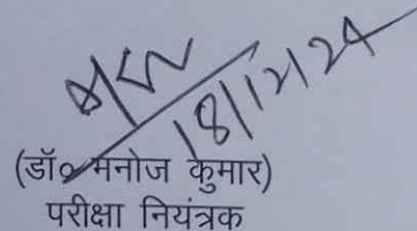 18/12/24
(डॉ० मनोज कुमार)
परीक्षा नियंत्रक